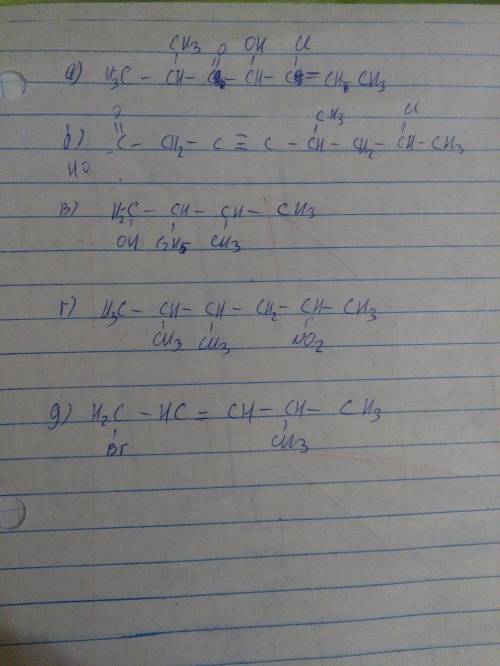 CH3 O OH Cl
а) H3C - CH - C - CH - C = CH CH3
O CH3 Cl
б) C - CH2 - C ≡ C - CH - CH2 - CH - CH3
HO
в) H2C - CH - CH - CH3
OH C2H5 CH3
г) H3C - CH - CH - CH2 - CH - CH3
CH3 CH3 NO2
д) H2C - HC = CH - CH - CH3
Br CH3